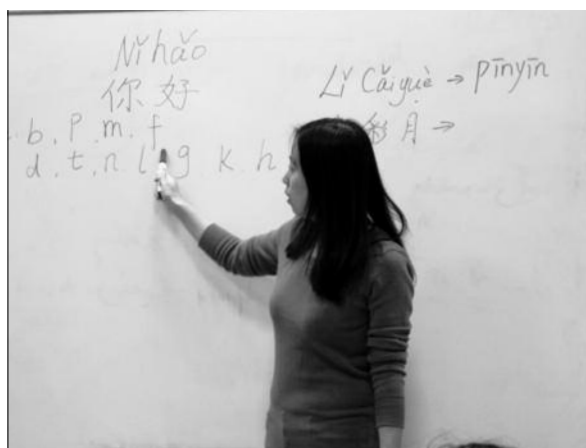 Nǐ hǎo
你好
b. p. m. f
d. t. n. l g. k. h
Lǐ Cǎiyuè → pīnyīn
彩月 →